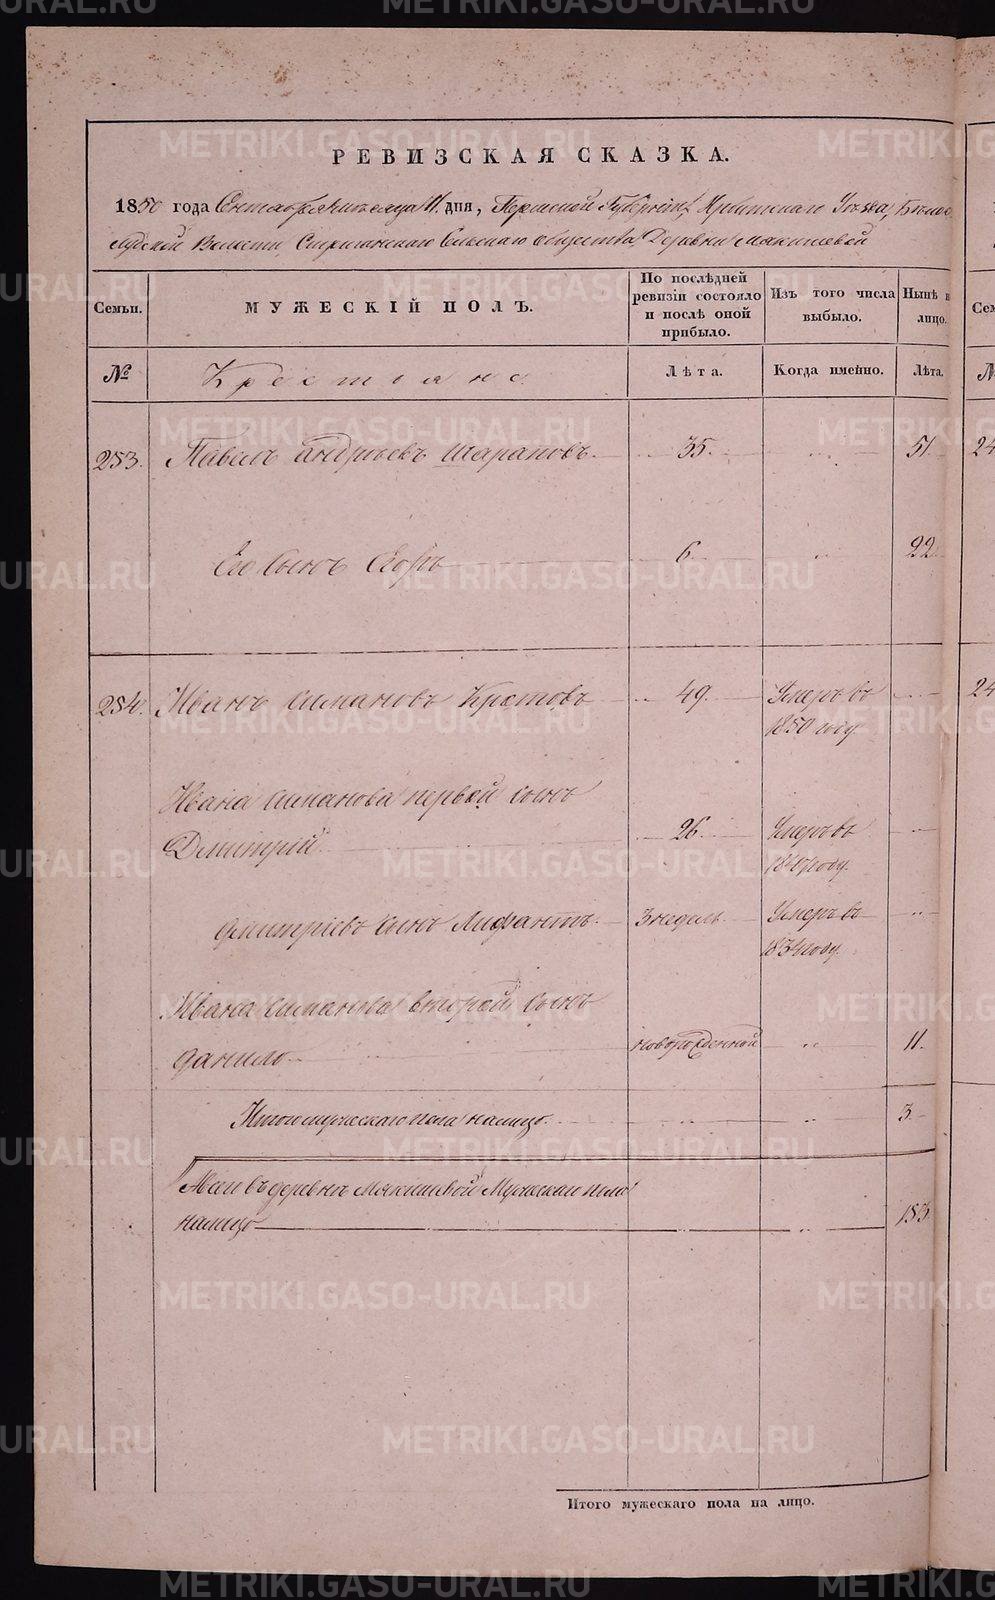 РЕВИЗСКАЯ СКАЗКА.
1850 года Сентября месяца 11 дня, Пермской Губернии, Ирбитскаго Уѣзда, Бѣло-
лудской Волости, Стриганскаго Сельскаго общества, Деревни Мякишевой
Семьи.
МУЖЕСКІЙ ПОЛЪ.
По послѣдней ревизіи состояло и послѣ оной прибыло.
Изъ того числа выбыло.
Нынѣ на лицо.
№
Крестьяне.
Лѣта.
Когда именно.
Лѣта.
253. Павелъ Андреевъ Шараповъ 35. 51.
Его Сынъ Егоръ 6 22
254. Иванъ Симановъ Кротовъ 49. Умеръ въ
1850 году.
Ивана Симанова первой сынъ
Дмитрій 26. Умеръ въ
году.
Дмитріевъ сынъ Лифантъ 3 недель Умеръ въ
1834 году.
Ивана Симанова второй сынъ
Данило новорожденной 11.
Итого мужескаго пола на лицо. 3
Всѣхъ въ деревнѣ Мякишевой Мужеска пола
на лицо 183
Итого мужескаго пола на лицо.
Сем
№
24
24
METRIKI.GASO-URAL.RU